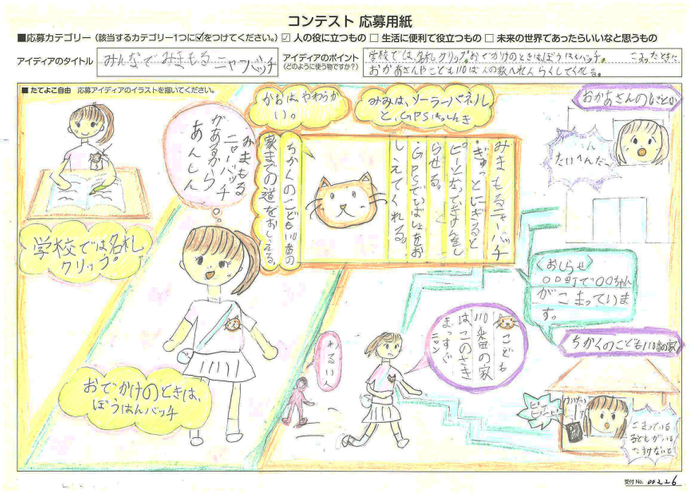 コンテスト 応募用紙
■応募カテゴリー (該当するカテゴリー1つに☑をつけてください。) ☑ 人の役に立つもの □ 生活に便利で役立つもの □ 未来の世界であったらいいなと思うもの
アイディアのタイトル
みんなで みまもる ニャンバッチ
アイディアのポイント
(どのように使う物ですか?)
学校では、名札クリップ。おでかけのときはぼうはんバッチ。
こまったときに、
おかあさんやこども110ばん
■たてよこ自由 応募アイディアのイラストを描いてください。
学校では名札
クリップ。
みまもる
ニャンバッチ
があるから
あんしん
かおは、やわらか
い。
みみは、ソーラーパネル
と、GPSきのうつき
みまもるニャンバッチ
・ぎゅっとにぎると
らせる。
・GPSで
しえてくれる。
ちかくのこども110ばんの
家までの道をおしえる。
おかあさんのしごと
たいへんだ
<おしらせ>
〇〇町で〇〇ちゃん
がこまっていま
す。
ちかくのこども110番の家
こども
110番の家
は、このさき
まっすぐ
ニャン
わるい人
おでかけのときは、
ぼうはんバッチ
こまっている
子どもがいる
たすけないと
受付No.